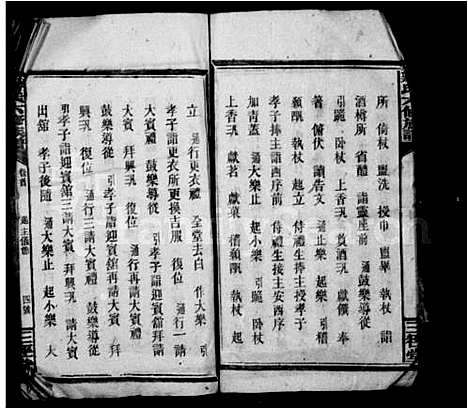 所 倚杖 盥洗 授巾 盥畢 執杖 詣
酒樽所 省醴 詣靈座前 通大樂止 起小樂
引跪 卧杖 上香𤣱 貫酒𤣱 獻饌 奉
箸 俯伏 讀告文 通止樂 起樂 引
顯𤣱 執杖 起立 侍禮生捧主授孝子
孝子捧主詣西序前 侍禮生接主安西序
加青蓋 通大樂止 起小樂 引跪 卧杖
上香𤣱 獻茗 獻菓 稽顙𤣱 執杖 起
立 通行更衣禮 全堂去白 作大樂 引
孝子詣更衣所更換吉服 復位 通行一請
大賓禮 鼓樂導從 引孝子詣迎賓館拜請
大賓 拜興𤣱 復位 通行再請大賓禮
鼓樂導從 引孝子詣迎賓館再請大賓 拜
興𤣱 復位 通行三請大賓禮 鼓樂導從
引孝子詣迎賓館三請大賓 拜興𤣱 請大賓
出舘 孝子後隨 通大樂止 起小樂 大
卷首
四號